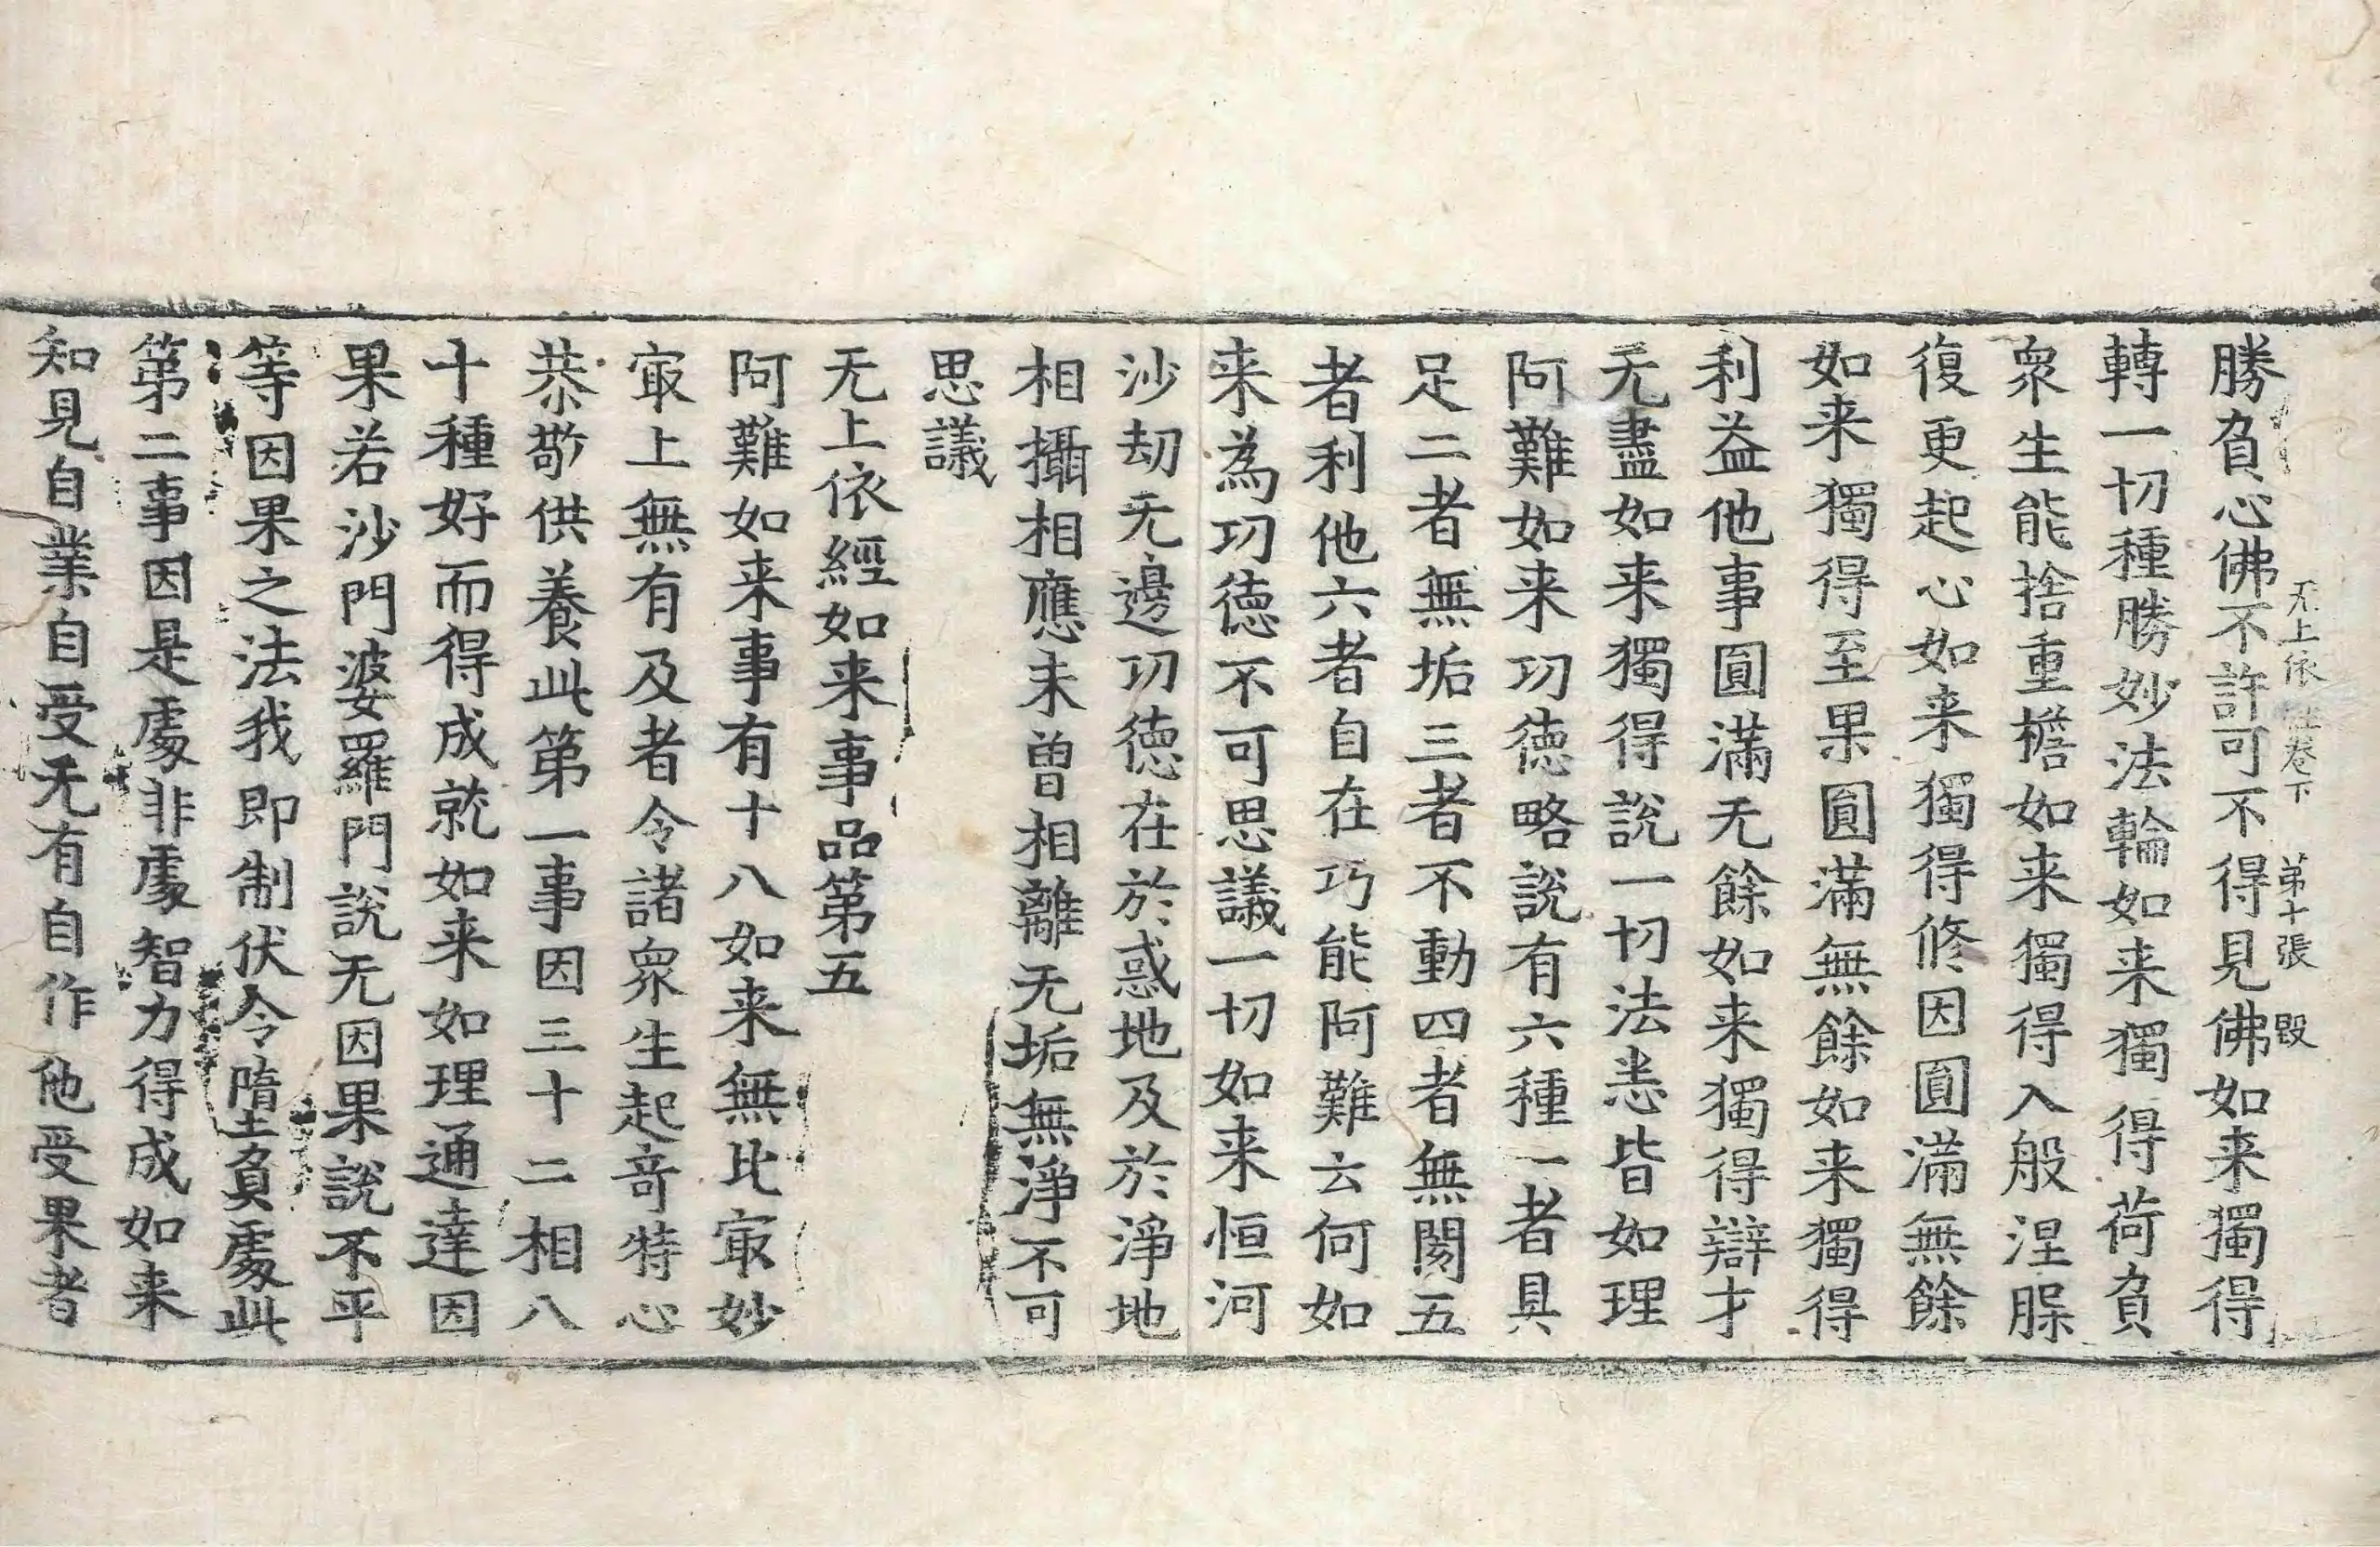 无上依經卷下 第十張 毀
勝負心佛不許可不得見佛如来獨得
轉一切種勝妙法輪如来獨得荷負
衆生能捨重檐如来獨得入般涅脲
復更起心如来獨得修因圓滿無餘
如来獨得至果圓滿無餘如来獨得
利益他事圓滿无餘如来獨得辯才
无盡如来獨得說一切法悉皆如理
阿難如来功徳略說有六種一者具
足二者無垢三者不動四者無閡五
者利他六者自在巧能阿難云何如
来為功徳不可思議一切如来恒河
沙劫无邊功徳在於惑地及於淨地
相攝相應未曾相離无垢無淨不可
思議
无上依經如来事品第五
阿難如来事有十八如来無比㝡妙
㝡上無有及者令諸衆生起竒特心
恭敬供養此第一事因三十二相八
十種好而得成就如来如理通達因
果若沙門婆羅門說无因果說不平
等因果之法我即制伏令墮負處此
第二事因是處非處智力得成如来
知見自業自受无有自作他受果者